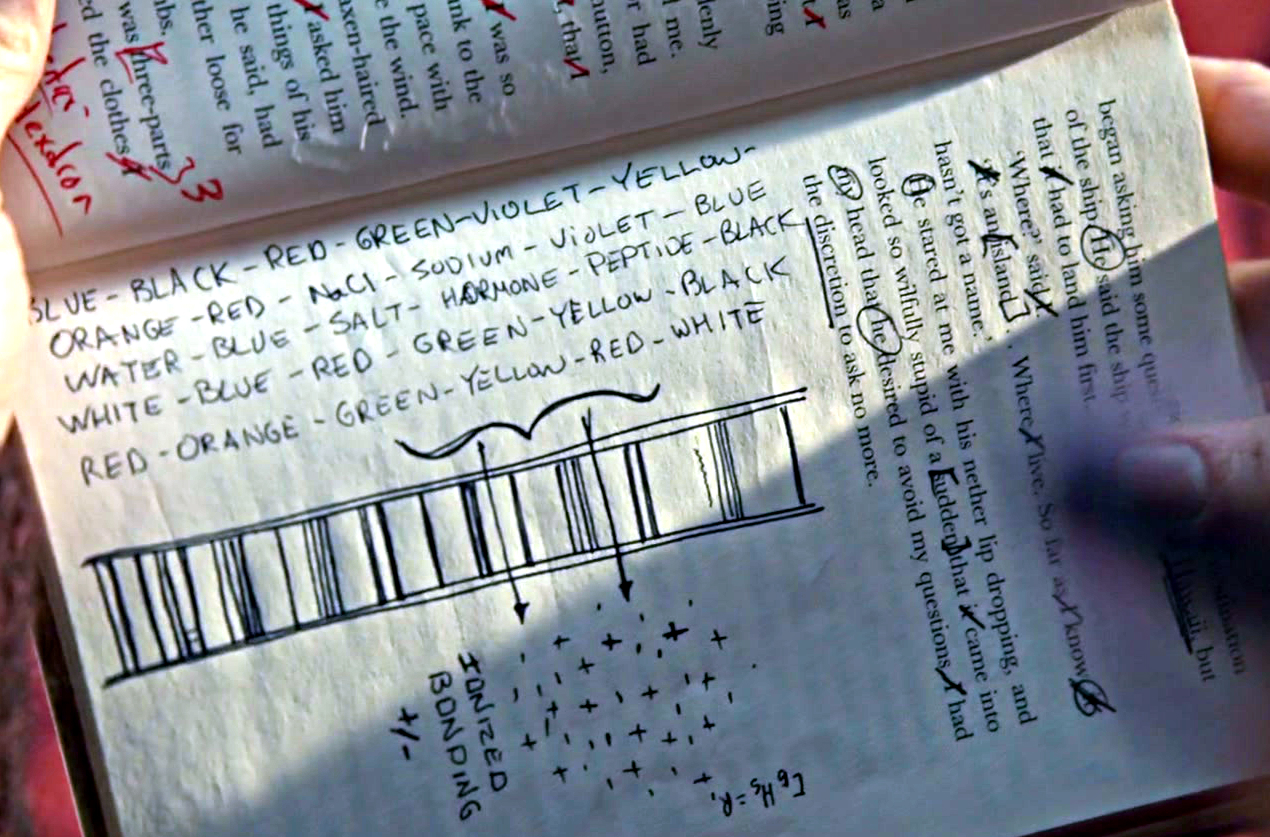 as
a
ing
lenly
d me.
r had
outton,
, that
was so
nk to the
pace with
e the wind.
axen-haired
asked him
things of his
he said, had
ther loose for
mbs.
was three-parts
ed the clothes
33
BLUE-BLACK-RED-GREEN-VIOLET-YELLOW-
ORANGE-RED-NaCl-SODIUM-VIOLET-BLUE
WATER-BLUE-SALT-HORMONE-PEPTIDE-BLACK
WHITE-BLUE-RED-GREEN-YELLOW-BLACK
RED-ORANGE-GREEN-YELLOW-RED-WHITE
IONIZED
BONDING
+/-
C6H5=R,
Hawaii, but
began asking him some
of the ship. He said the ship
that it had to land him first.
'Where?' said
'It's an island. Where I live. So far as I know
hasn't got a name.'
He stared at me with his nether lip dropping, and
looked so wilfully stupid of a sudden that it came into
my head that he desired to avoid my questions. I had
the discretion to ask no more.